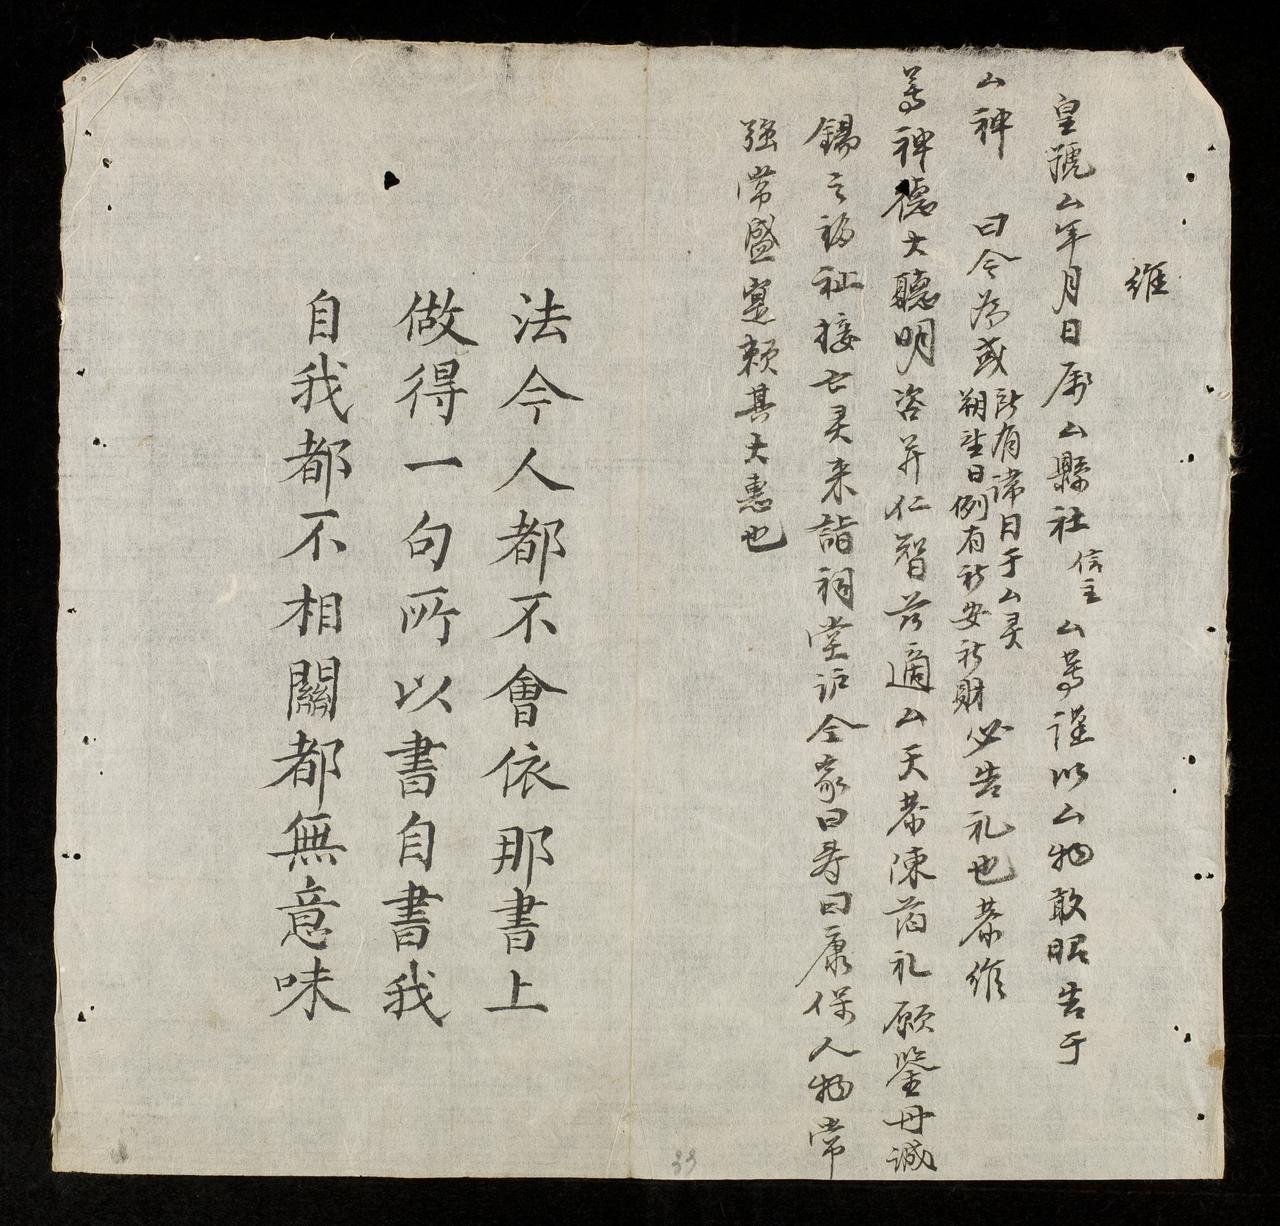 維
皇號厶年月日屬厶縣社信主厶等謹以厶物敢昭告于
厶神 曰今為或祈有常日于厶灵朔望日例有祈安祈財必告礼也恭維
尊神德大聽明咨並仁智茲適厶天恭陳菲礼願鑒丹誠
錫之福祉接亡灵来詣祠堂評全家曰寿曰康保人物常
强常盛寔頼其大惠也
法今人都不會依那書上
做得一句所以書自書我
自我都不相關都無意味
33